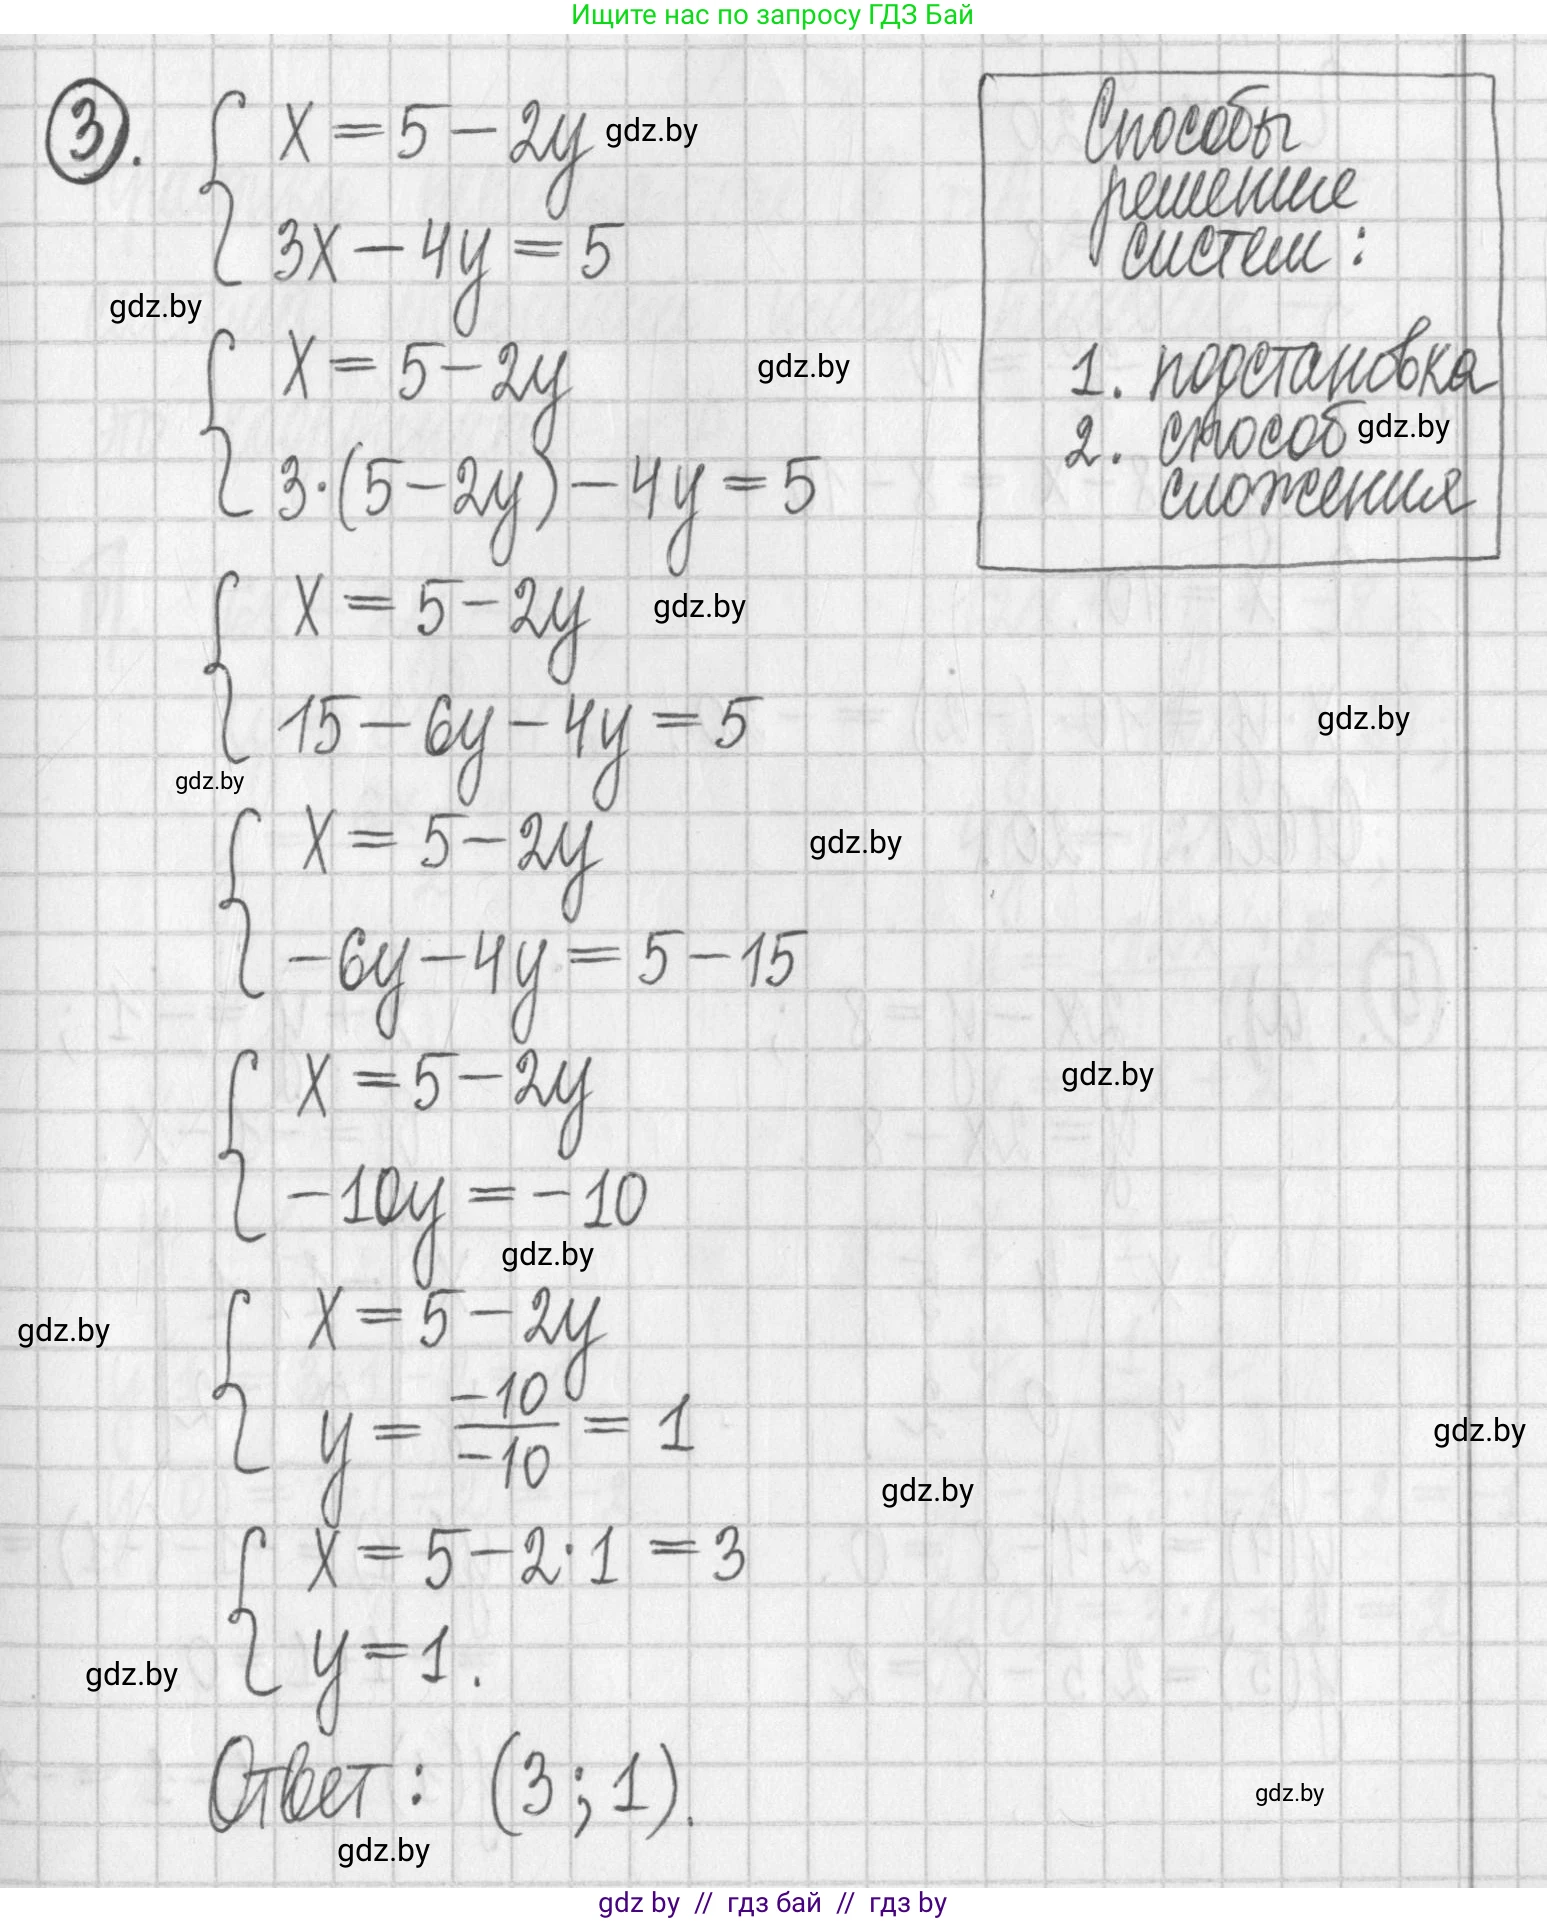 Ищите нас по запросу ГДЗ Бай
3. { x = 5 − 2y gdz.by
3x − 4y = 5
gdz.by
Способы
решение
систем:
1. подстановка
2. способ gdz.by
сложения
{ x = 5 − 2y gdz.by
3·(5 − 2y) − 4y = 5
{ x = 5 − 2y gdz.by
15 − 6y − 4y = 5 gdz.by
gdz.by
{ x = 5 − 2y gdz.by
−6y − 4y = 5 − 15
{ x = 5 − 2y gdz.by
−10y = −10
gdz.by
gdz.by
{ x = 5 − 2y
y = −10/−10 = 1 gdz.by
gdz.by
{ x = 5 − 2·1 = 3
y = 1.
gdz.by
Ответ: (3; 1). gdz.by
gdz.by
gdz by // гдз бай // гдз by